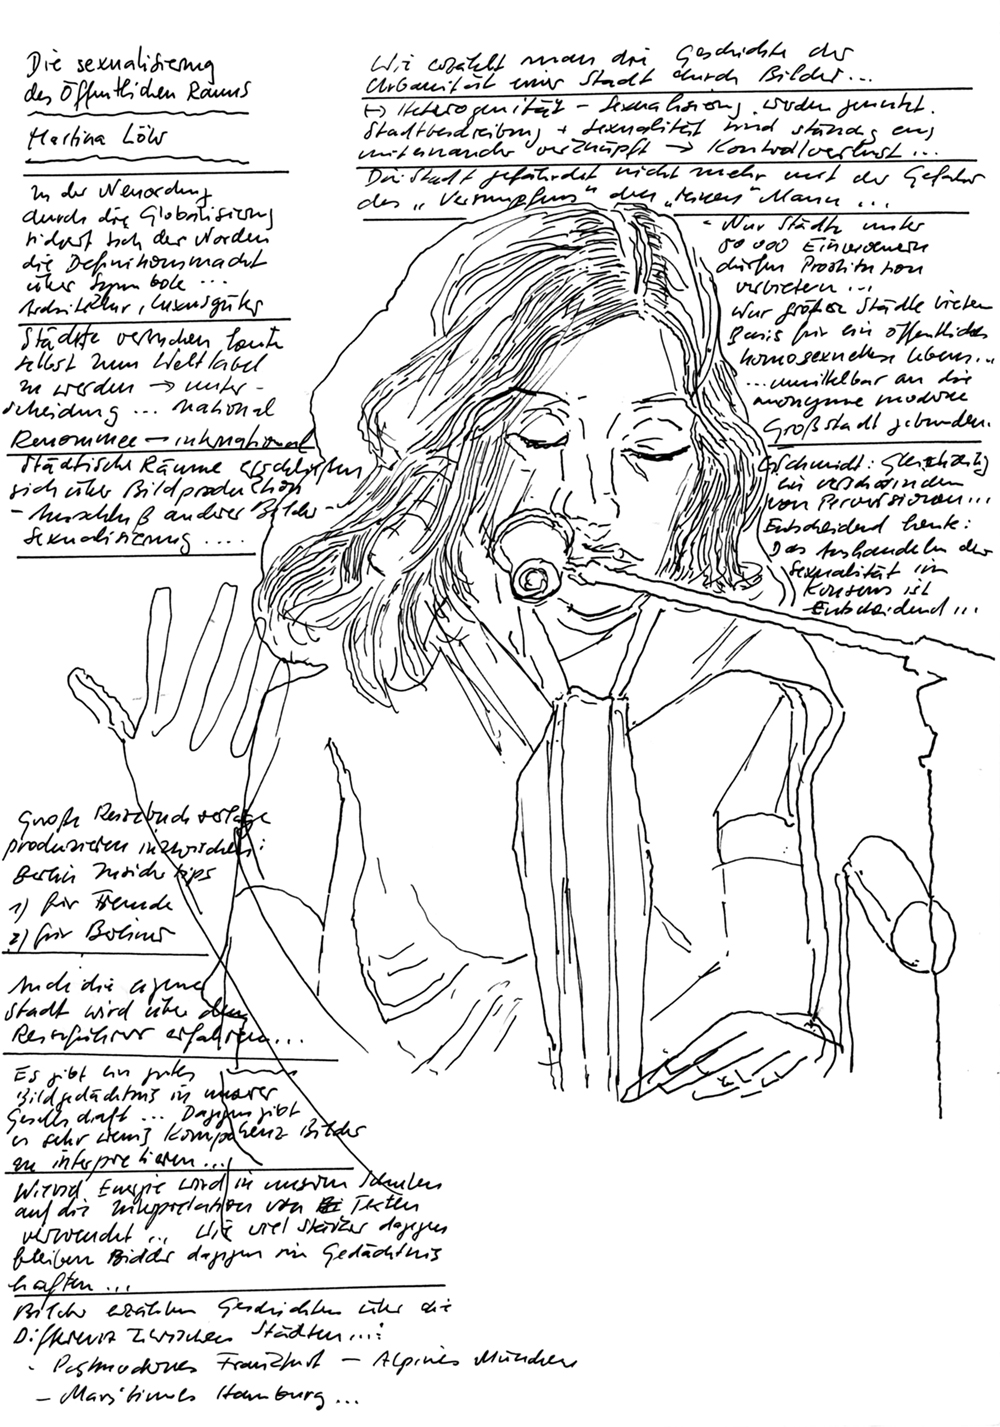 Die sexualisierung
des Öffentlichen Raums
Martina Löw
In der Neuordnung
durch die Globalisierung
sichert sich der Norden
die Definitionsmacht
über Symbole ...
Architektur, Luxusgüter
Städte versuchen heute
selbst zum Weltlabel
zu werden → unter-
scheidung ... national
Renommee – international
Städtische Räume erschließen
sich über Bildproduktion
- Ausschluß anderer Bilder -
Sexualisierung ....
Große Reisebuchverlage
produzieren inzwischen:
Berlin Insidertips
1) für Fremde
2) für Berliner
Auch die eigene
Stadt wird über den
Reiseführer erfahren...
Es gibt ein gutes
Bildgedächtnis in unserer
Gesellschaft ... Dagegen gibt
es sehr wenig Kompetenz Bilder
zu interpretieren...
Wieviel Energie wird in unseren Schulen
auf die Interpretation von Texten
verwendet ... Wie viel stärker dagegen
bleiben Bilder dagegen im Gedächtnis
haften ...
Bilder erzählen Geschichten über die
Differenz zwischen Städten...:
- Postmodernes Frankfurt – Alpines München
- Maritimes Hamburg ...
Wie erzählt man die Geschichte der
Urbanität einer Stadt durch Bilder...
↦ Heterogenität – Sexualisierung werden genutzt.
Stadtbeschreibung + Sexualität sind ständig eng
miteinander verknüpft → Kontrollverlust...
Die Stadt gefährdet nicht mehr mit der Gefahr
des „Versumpfens" den „reinen" Mann ...
- Nur Städte unter
50 000 Einwohnern
dürfen Prostitution
verbieten ...
Nur größere Städte bieten
Basis für ein öffentliches
homosexuelles Leben...
... unmittelbar an die
anonyme moderne
Großstadt gebunden.
G. Schmidt: Gleichzeitig
ein verschwinden
von Perversionen...
Entscheidend heute:
Das Aushandeln der
Sexualität im
Konsens ist
Entscheidend ...